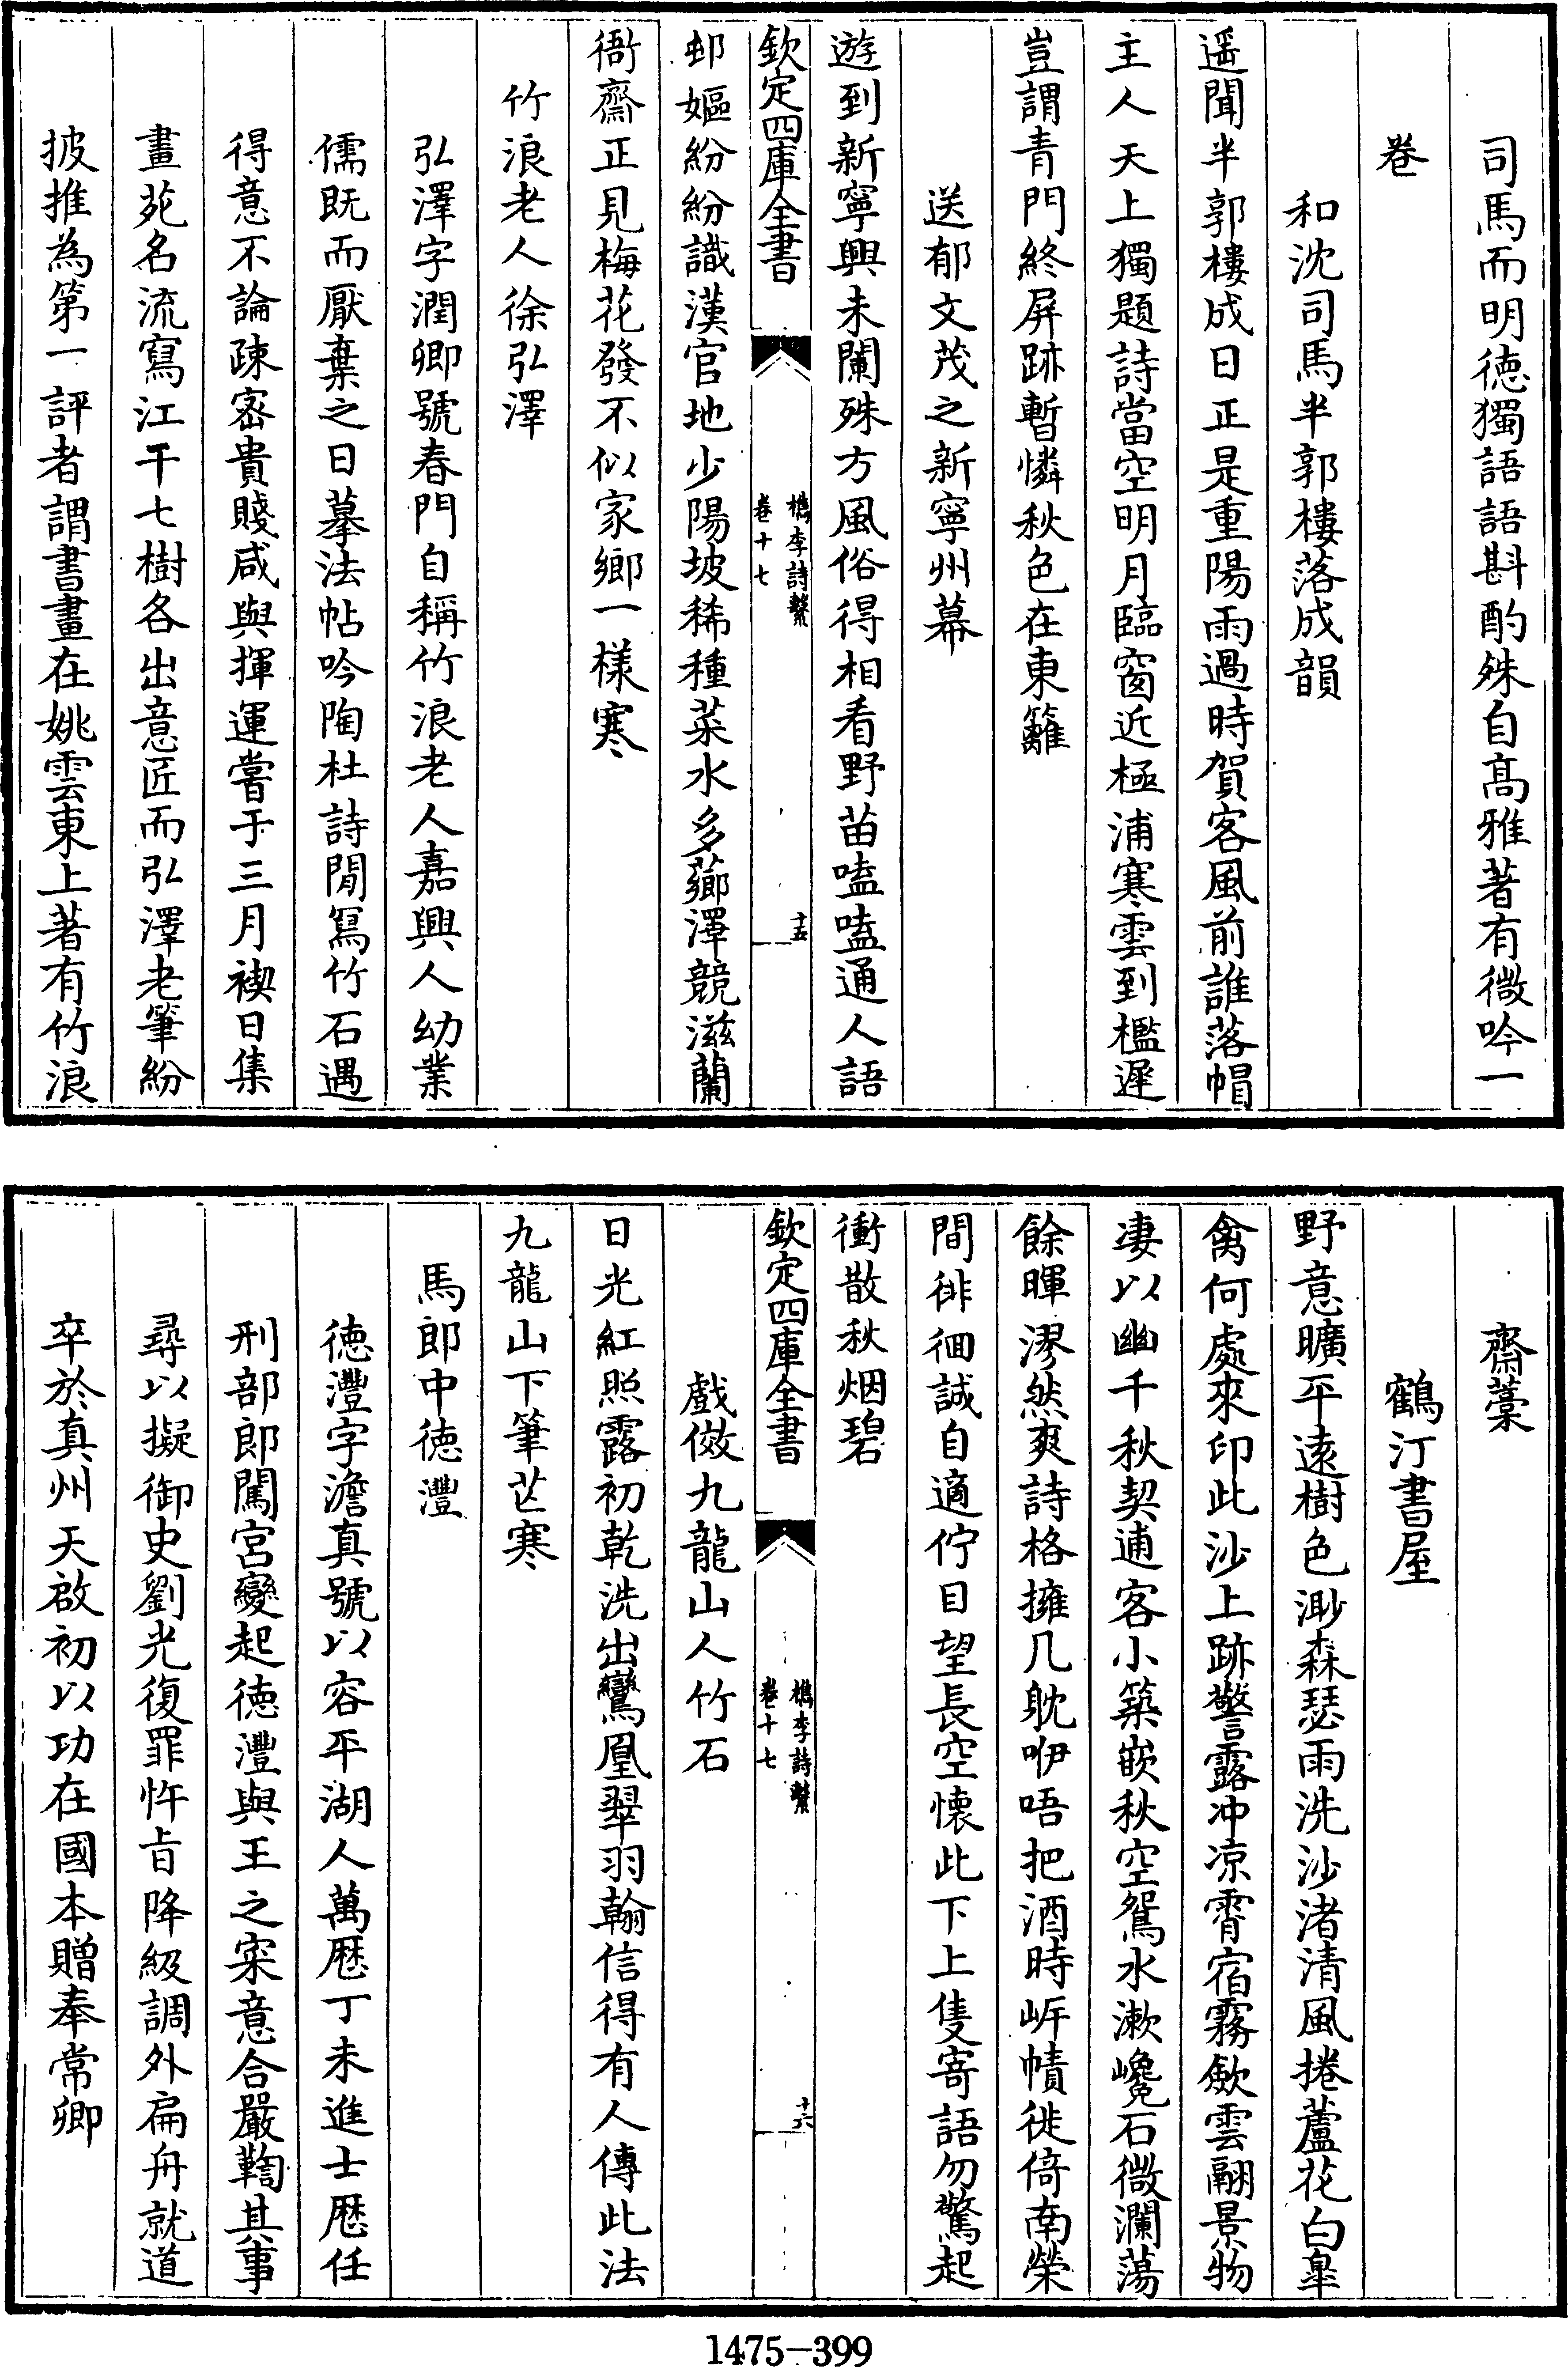 司馬而明徳獨語語斟酌殊自高雅著有微吟一
卷
和沈司馬半郭樓落成韻
遥聞半郭樓成日正是重陽雨過時賀客風前誰落帽
主人天上獨題詩當空明月臨窗近極浦寒雲到檻遲
豈謂青門終屏跡暫憐秋色在東籬
送郁文茂之新寧州幕
遊到新寧興未闌殊方風俗得相看野苗嗑嗑通人語
欽定四庫全書
檇李詩繫
卷十七
十五
邨嫗紛紛識漢官地少陽坡稀種菜水多薌澤競滋蘭
衙齋正見梅花發不似家鄉一樣寒
竹浪老人徐弘澤
弘澤字潤卿號春門自稱竹浪老人嘉興人幼業
儒既而厭棄之日摹法帖吟陶杜詩閒寫竹石遇
得意不論疎宻貴賤咸與揮運嘗于三月禊日集
畫苑名流寫江干七樹各出意匠而弘澤老筆紛
披推為第一評者謂書畫在姚雲東上著有竹浪
齋藁
鶴汀書屋
野意曠平遠樹色渺森瑟雨洗沙渚清風捲蘆花白皐
禽何處來印此沙上跡警露冲凉霄宿霧歛雲翮景物
凄以幽千秋契逋客小築嵌秋空鴛水漱巉石微瀾蕩
餘暉漻然爽詩格擁几躭咿唔把酒時岸幘徙倚南榮
間徘徊誠自適佇目望長空懐此下上隻寄語勿驚起
衝散秋烟碧
欽定四庫全書
檇李詩繫
卷十七
十六
戲倣九龍山人竹石
日光紅照露初乾洗出鸞凰翠羽翰信得有人傳此法
九龍山下筆芒寒
馬郎中徳灃
徳灃字澹真號以容平湖人萬厯丁未進士厯任
刑部郎闖宮變起徳灃與王之寀意合嚴鞫其事
尋以擬御史劉光復罪忤旨降級調外扁舟就道
卒於真州天啟初以功在國本贈奉常卿
1475-399